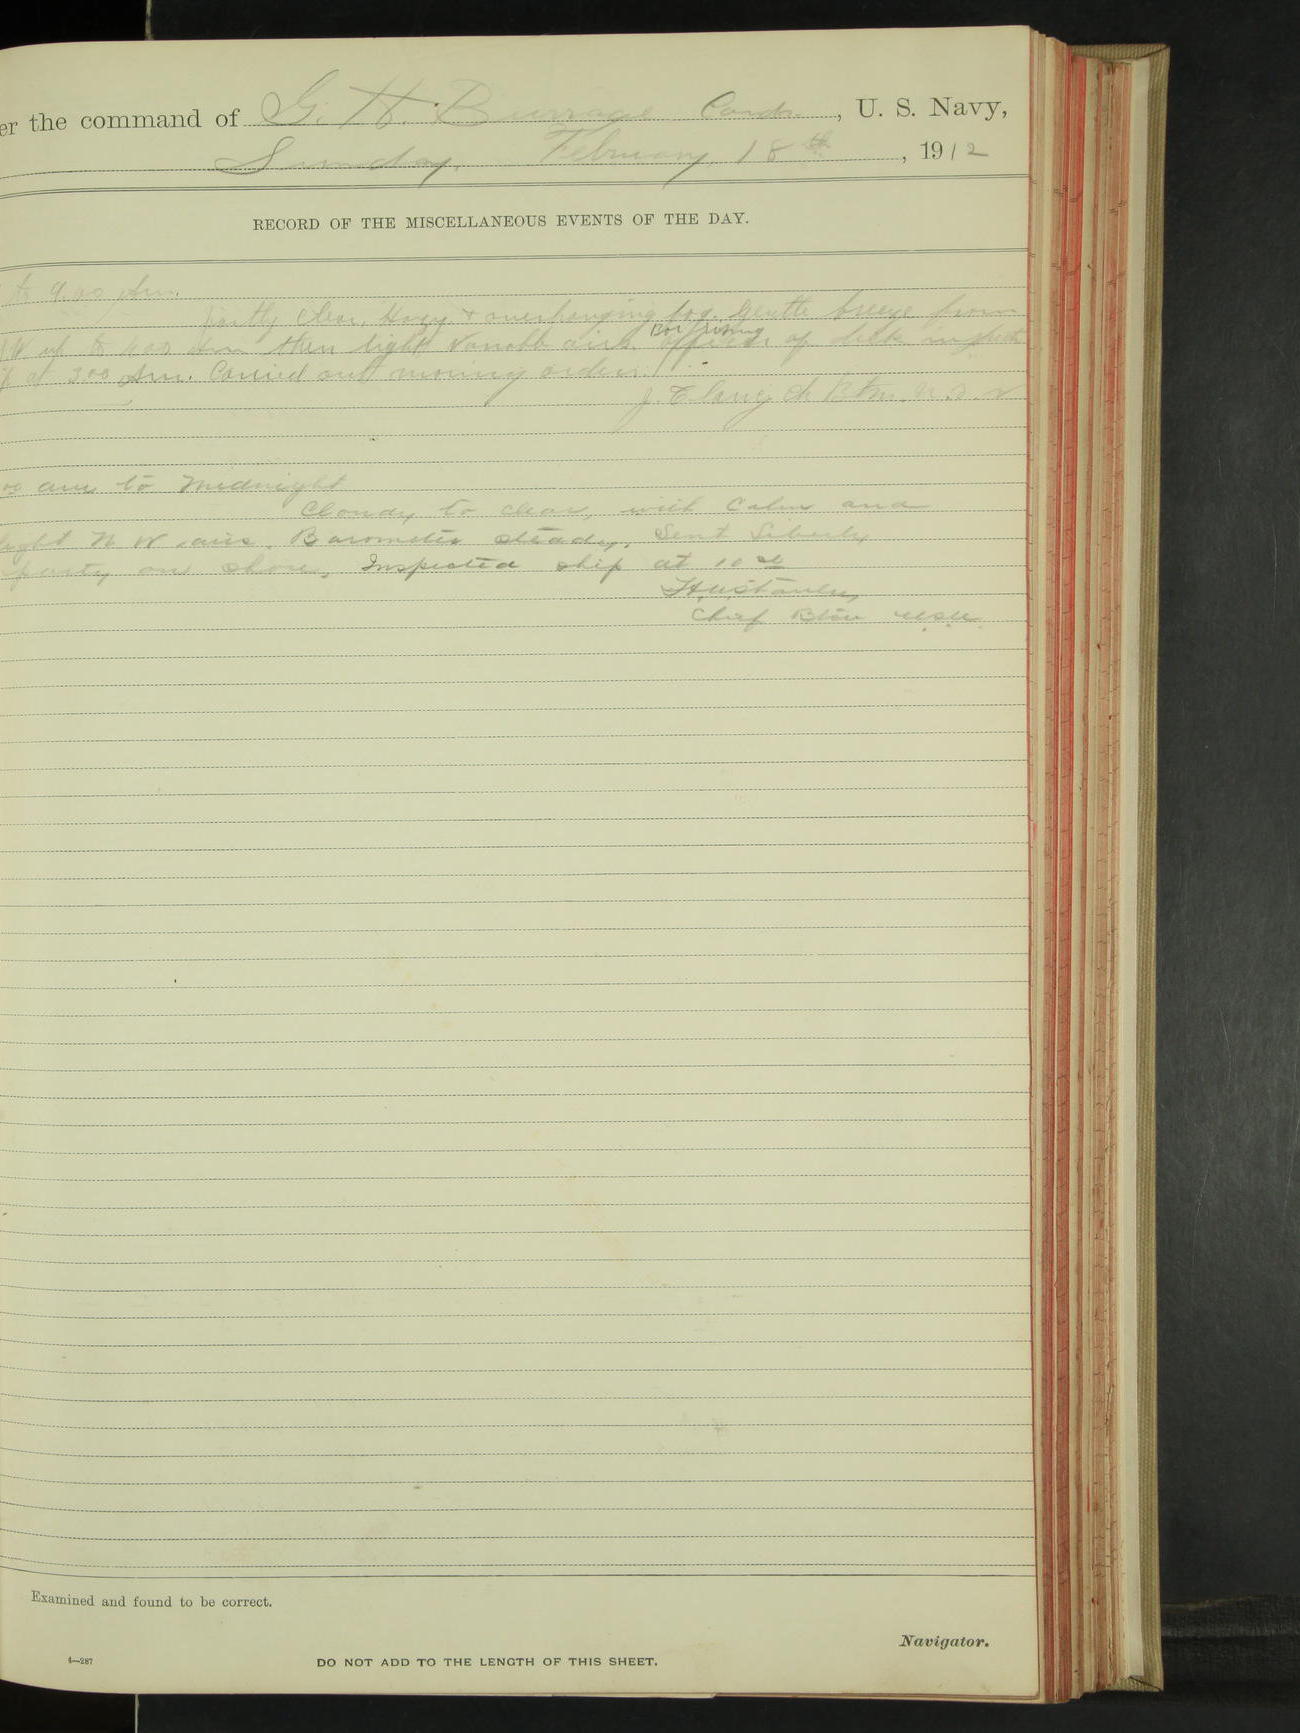 er the command of G. H. Burrage Comdr., U. S. Navy,
Sunday, February 18th, 1912
RECORD OF THE MISCELLANEOUS EVENTS OF THE DAY.
to 9.00 Am.
Partly clear, Hazy & overhanging fog. Gentle breeze from
W up to 4.00 Am then light variable airs. of deck
at 3.00 Am. Carried out morning orders.
J. Clancy Ch Btsn. U.S.N
am to Midnight
Cloudy to clear, with Calm and
light N W airs. Barometer steady. Sent Liberty
party on shore, Inspected ship at 10
Chief Btsn USN.
Examined and found to be correct.
Navigator.
4—287
DO NOT ADD TO THE LENGTH OF THIS SHEET.